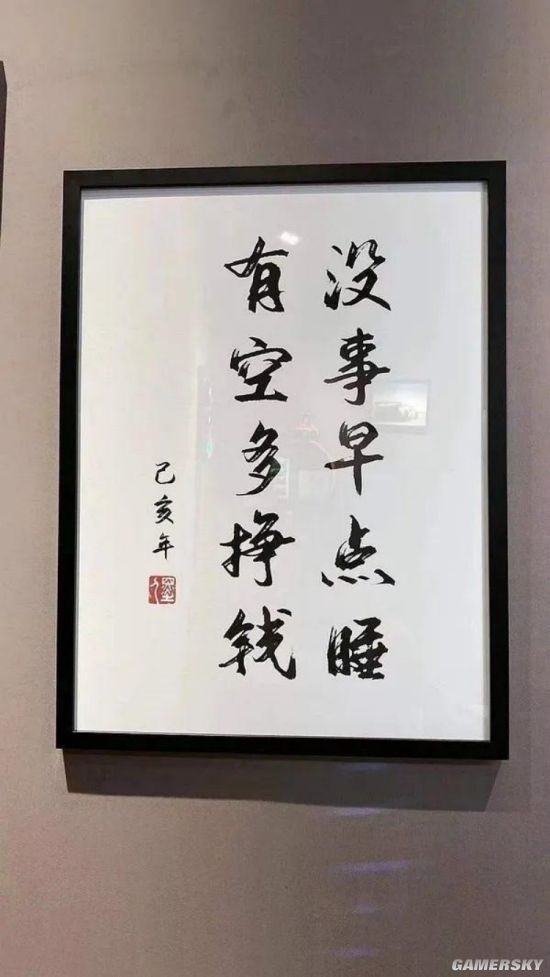 没事早点睡
有空多挣钱
己亥年
GAMERSKY